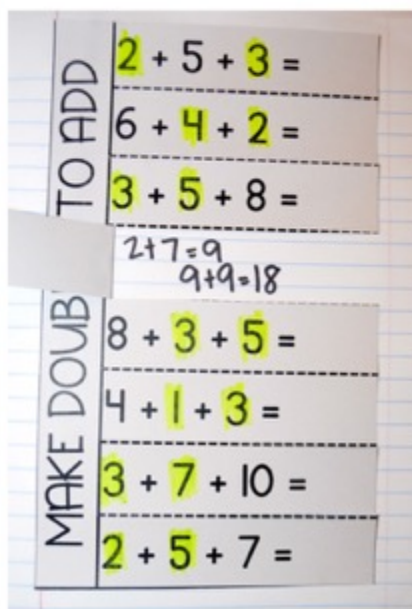 MAKE DOUB TO ADD
2 + 5 + 3 =
6 + 4 + 2 =
3 + 5 + 8 =
2+7=9
9+9=18
8 + 3 + 5 =
4 + 1 + 3 =
3 + 7 + 10 =
2 + 5 + 7 =